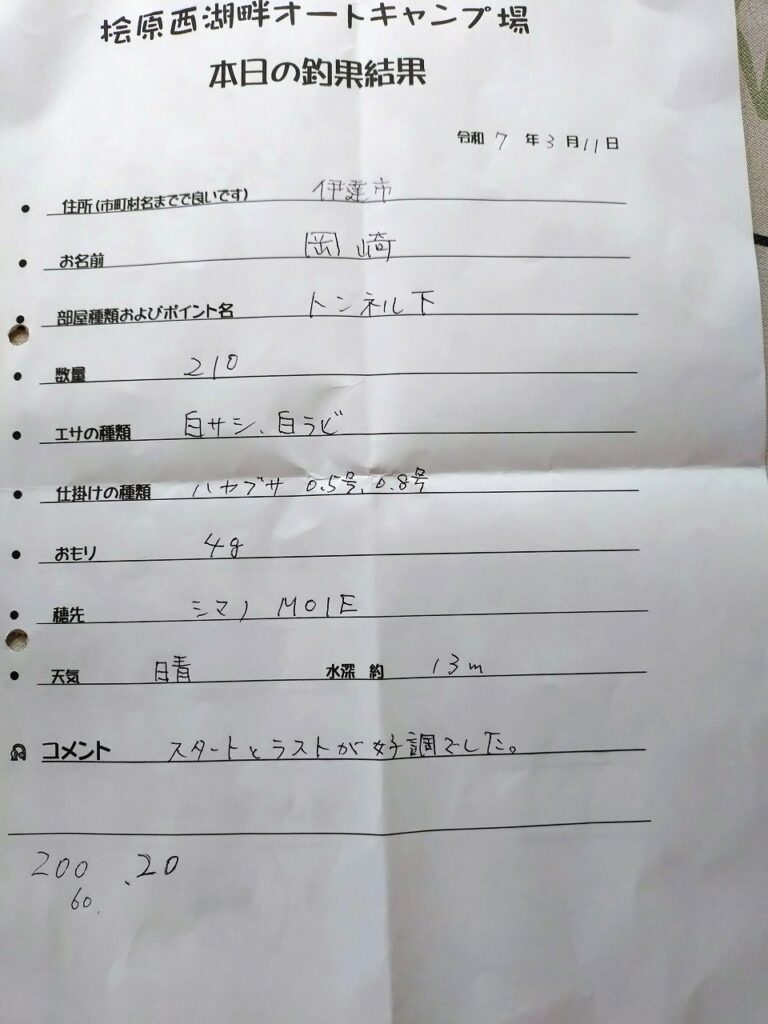 桧原西湖畔オートキャンプ場
本日の釣果結果
令和 7 年 3 月 11 日
• 住所(市町村名までで良いです) 伊達市
• お名前 岡崎
• 部屋種類およびポイント名 トンネル下
• 数量 210
• エサの種類 白サシ、白ラビ
• 仕掛けの種類 ハヤブサ 0.5号、0.8号
• おもり 4g
• 穂先 シマノ M01E
• 天気 晴 水深 約 13m
コメント スタートとラストが好調でした。
200 .20
60.